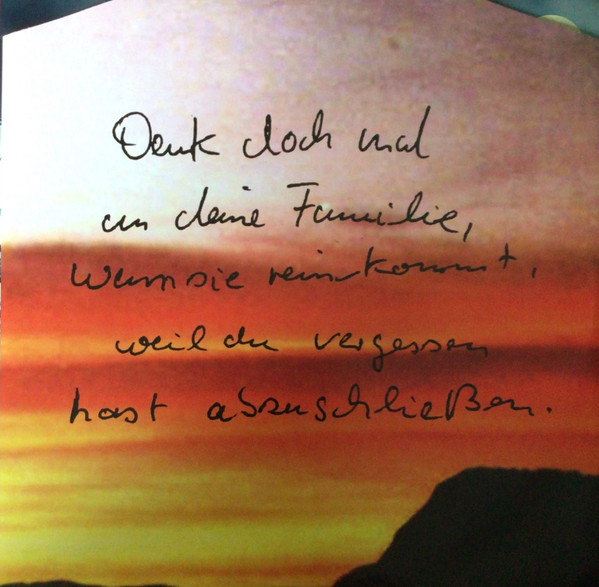 Denk doch mal
an deine Familie,
wenn sie reinkommt,
weil du vergessen
hast abzuschließen.